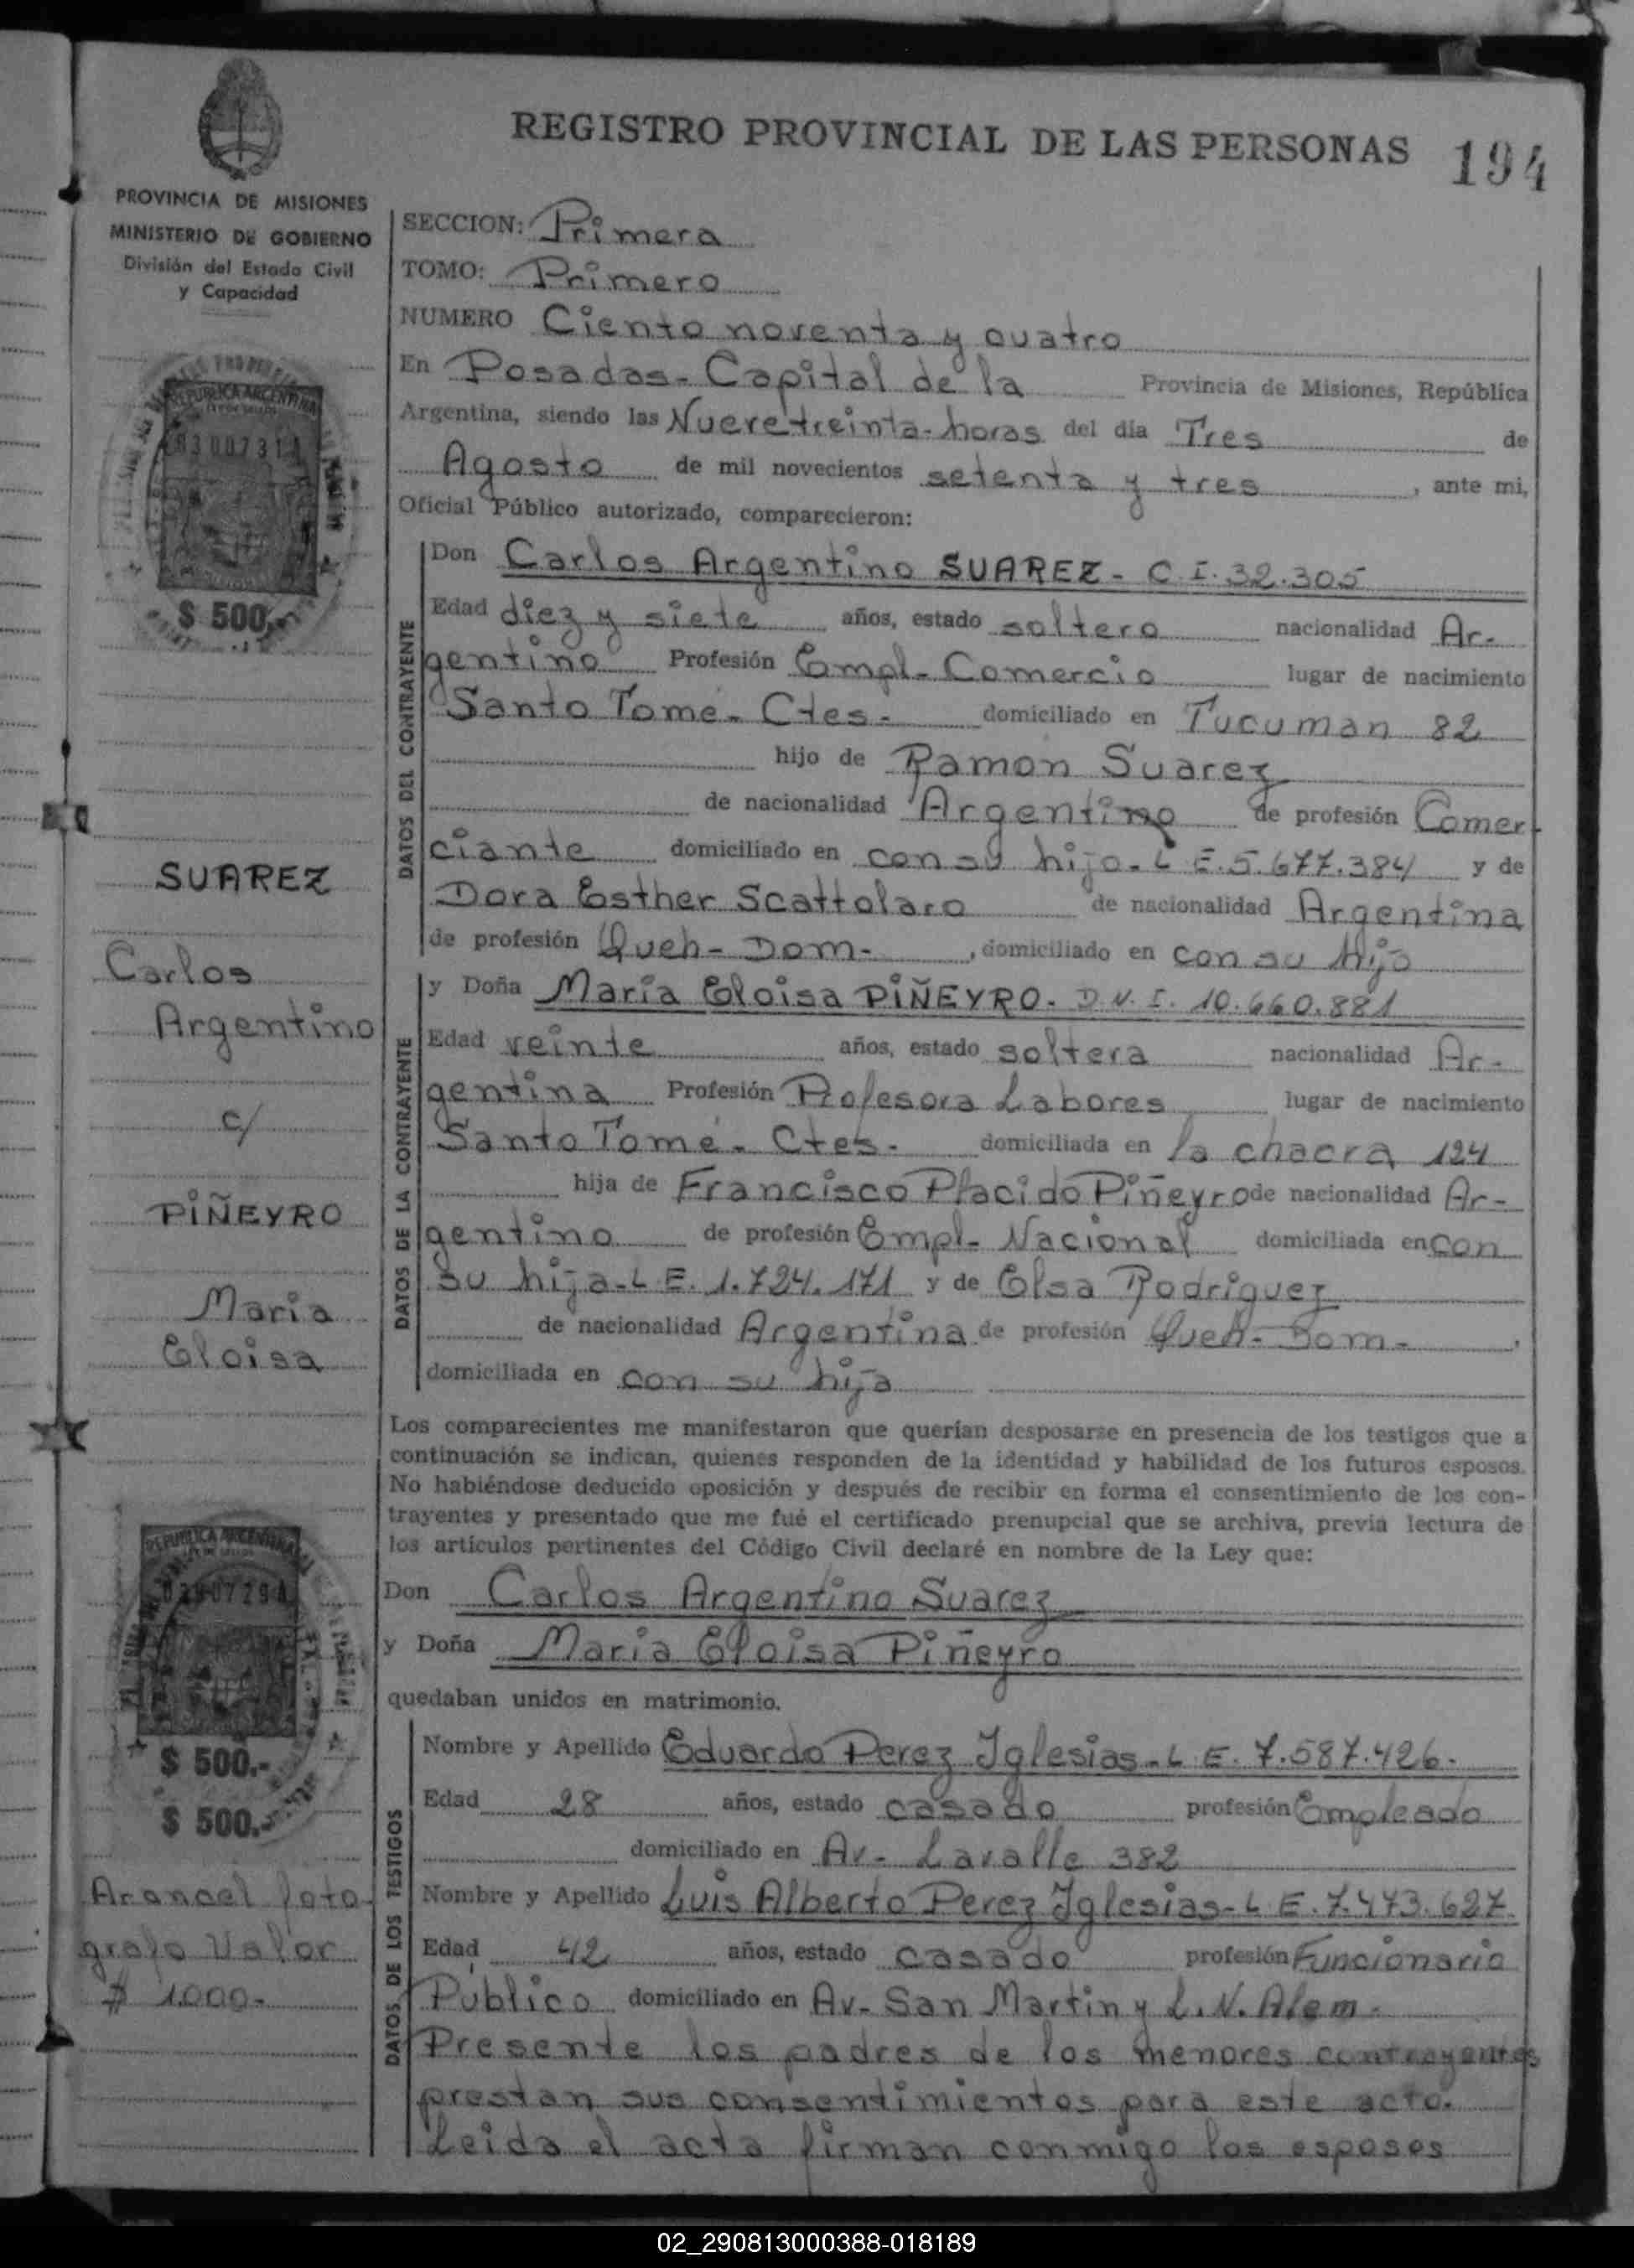 REGISTRO PROVINCIAL DE LAS PERSONAS 194
PROVINCIA DE MISIONES
MINISTERIO DE GOBIERNO
División del Estado Civil
y Capacidad
REPUBLICA ARGENTINA
$ 500.-
SUAREZ
Carlos
Argentino
c/
PIÑEYRO
Maria
Eloisa
REPUBLICA ARGENTINA
$ 500.-
$ 500.-
Arancel foto
grafo Valor
$ 1.000.-
SECCION: Primera
TOMO: Primero
NUMERO Ciento noventa y cuatro
En Posadas - Capital de la Provincia de Misiones, República
Argentina, siendo las Nueve treinta - horas del día Tres de
Agosto de mil novecientos setenta y tres, ante mi,
Oficial Público autorizado, comparecieron:
DATOS DEL CONTRAYENTE
Don Carlos Argentino SUAREZ - C.I. 32.305
Edad diez y siete años, estado soltero nacionalidad Ar-
gentino Profesión Empl - Comercio lugar de nacimiento
Santo Tomé - Ctes - domiciliado en Tucuman 82
hijo de Ramon Suarez
de nacionalidad Argentino de profesión Comer-
ciante domiciliado en con su hijo - L E. 5.677.384 y de
Dora Esther Scattolaro de nacionalidad Argentina
de profesión Queh - Dom -, domiciliado en con su hijo
DATOS DE LA CONTRAYENTE
y Doña Maria Eloisa PIÑEYRO - D.N.I. 10.660.881
Edad veinte años, estado soltera nacionalidad Ar-
gentina Profesión Profesora Labores lugar de nacimiento
Santo Tomé - Ctes - domiciliada en la chacra 124
hija de Francisco Placido Piñeyro de nacionalidad Ar-
gentino de profesión Empl - Nacional domiciliada en con
su hija - L.E. 1.724.171 y de Elsa Rodriguez
de nacionalidad Argentina de profesión Queh - Dom -,
domiciliada en con su hija
Los comparecientes me manifestaron que querían desposarse en presencia de los testigos que a
continuación se indican, quienes responden de la identidad y habilidad de los futuros esposos.
No habiéndose deducido oposición y después de recibir en forma el consentimiento de los con-
trayentes y presentado que me fué el certificado prenupcial que se archiva, previa lectura de
los artículos pertinentes del Código Civil declaré en nombre de la Ley que:
Don Carlos Argentino Suarez
y Doña Maria Eloisa Piñeyro
quedaban unidos en matrimonio.
DATOS DE LOS TESTIGOS
Nombre y Apellido Eduardo Perez Iglesias - L E. 7.587.426 -
Edad 28 años, estado casado profesión Empleado
domiciliado en Av - Lavalle 382
Nombre y Apellido Luis Alberto Perez Iglesias - L E. 7.473.627
Edad 42 años, estado casado profesión Funcionario
Público domiciliado en Av - San Martin y L. N. Alem -
Presente los padres de los menores contrayentes
prestan sus consentimientos para este acto.
Leida el acta firman conmigo los esposos
02_290813000388-018189